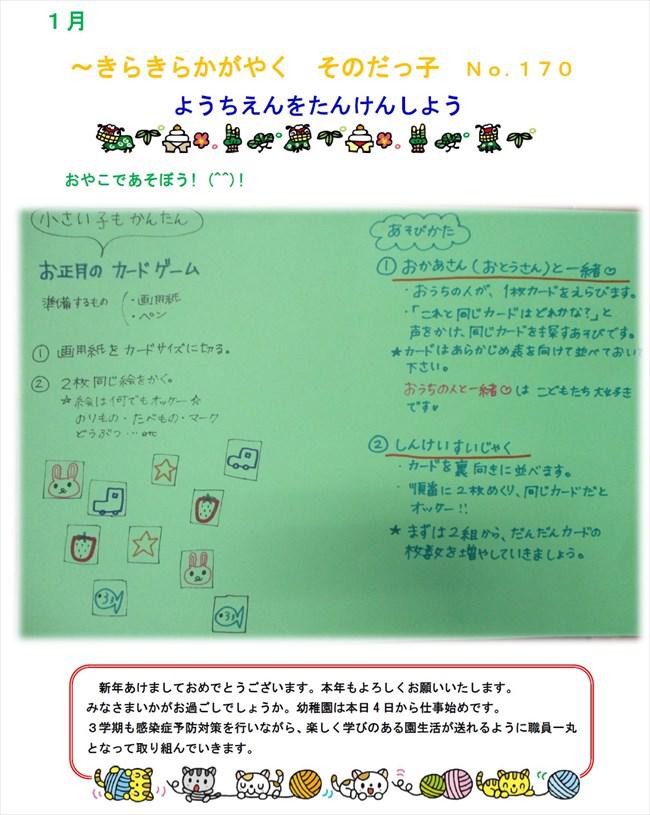 １月
～きらきらかがやく　そのだっ子　Ｎｏ.１７０
ようちえんをたんけんしよう
おやこであそぼう！(^^)！
小さい子もかんたん
お正月の カードゲーム
準備するもの
・画用紙
・ペン
① 画用紙をカードサイズに切る。
② 2枚同じ絵をかく。
☆絵は何でもオッケー☆
のりもの・たべもの・マーク
どうぶつ…etc
あそびかた
① おかあさん(おとうさん)と一緒♡
・おうちの人が、1枚カードをえらびます。
・「これと同じカードはどれかな？」と
声をかけ、同じカードを探すあそびです。
★カードはあらかじめ表を向けて並べておいて
下さい。
おうちの人と一緒♡は こどもたち大好き
です♡
② しんけいすいじゃく
・カードを裏向きに並べます。
・順番に2枚めくり、同じカードだと
オッケー!!
★ まずは2組から、だんだんカードの
枚数を増やしていきましょう。
新年あけましておめでとうございます。本年もよろしくお願いいたします。
みなさまいかがお過ごしでしょうか。幼稚園は本日４日から仕事始めです。
３学期も感染症予防対策を行いながら、楽しく学びのある園生活が送れるように職員一丸
となって取り組んでいきます。